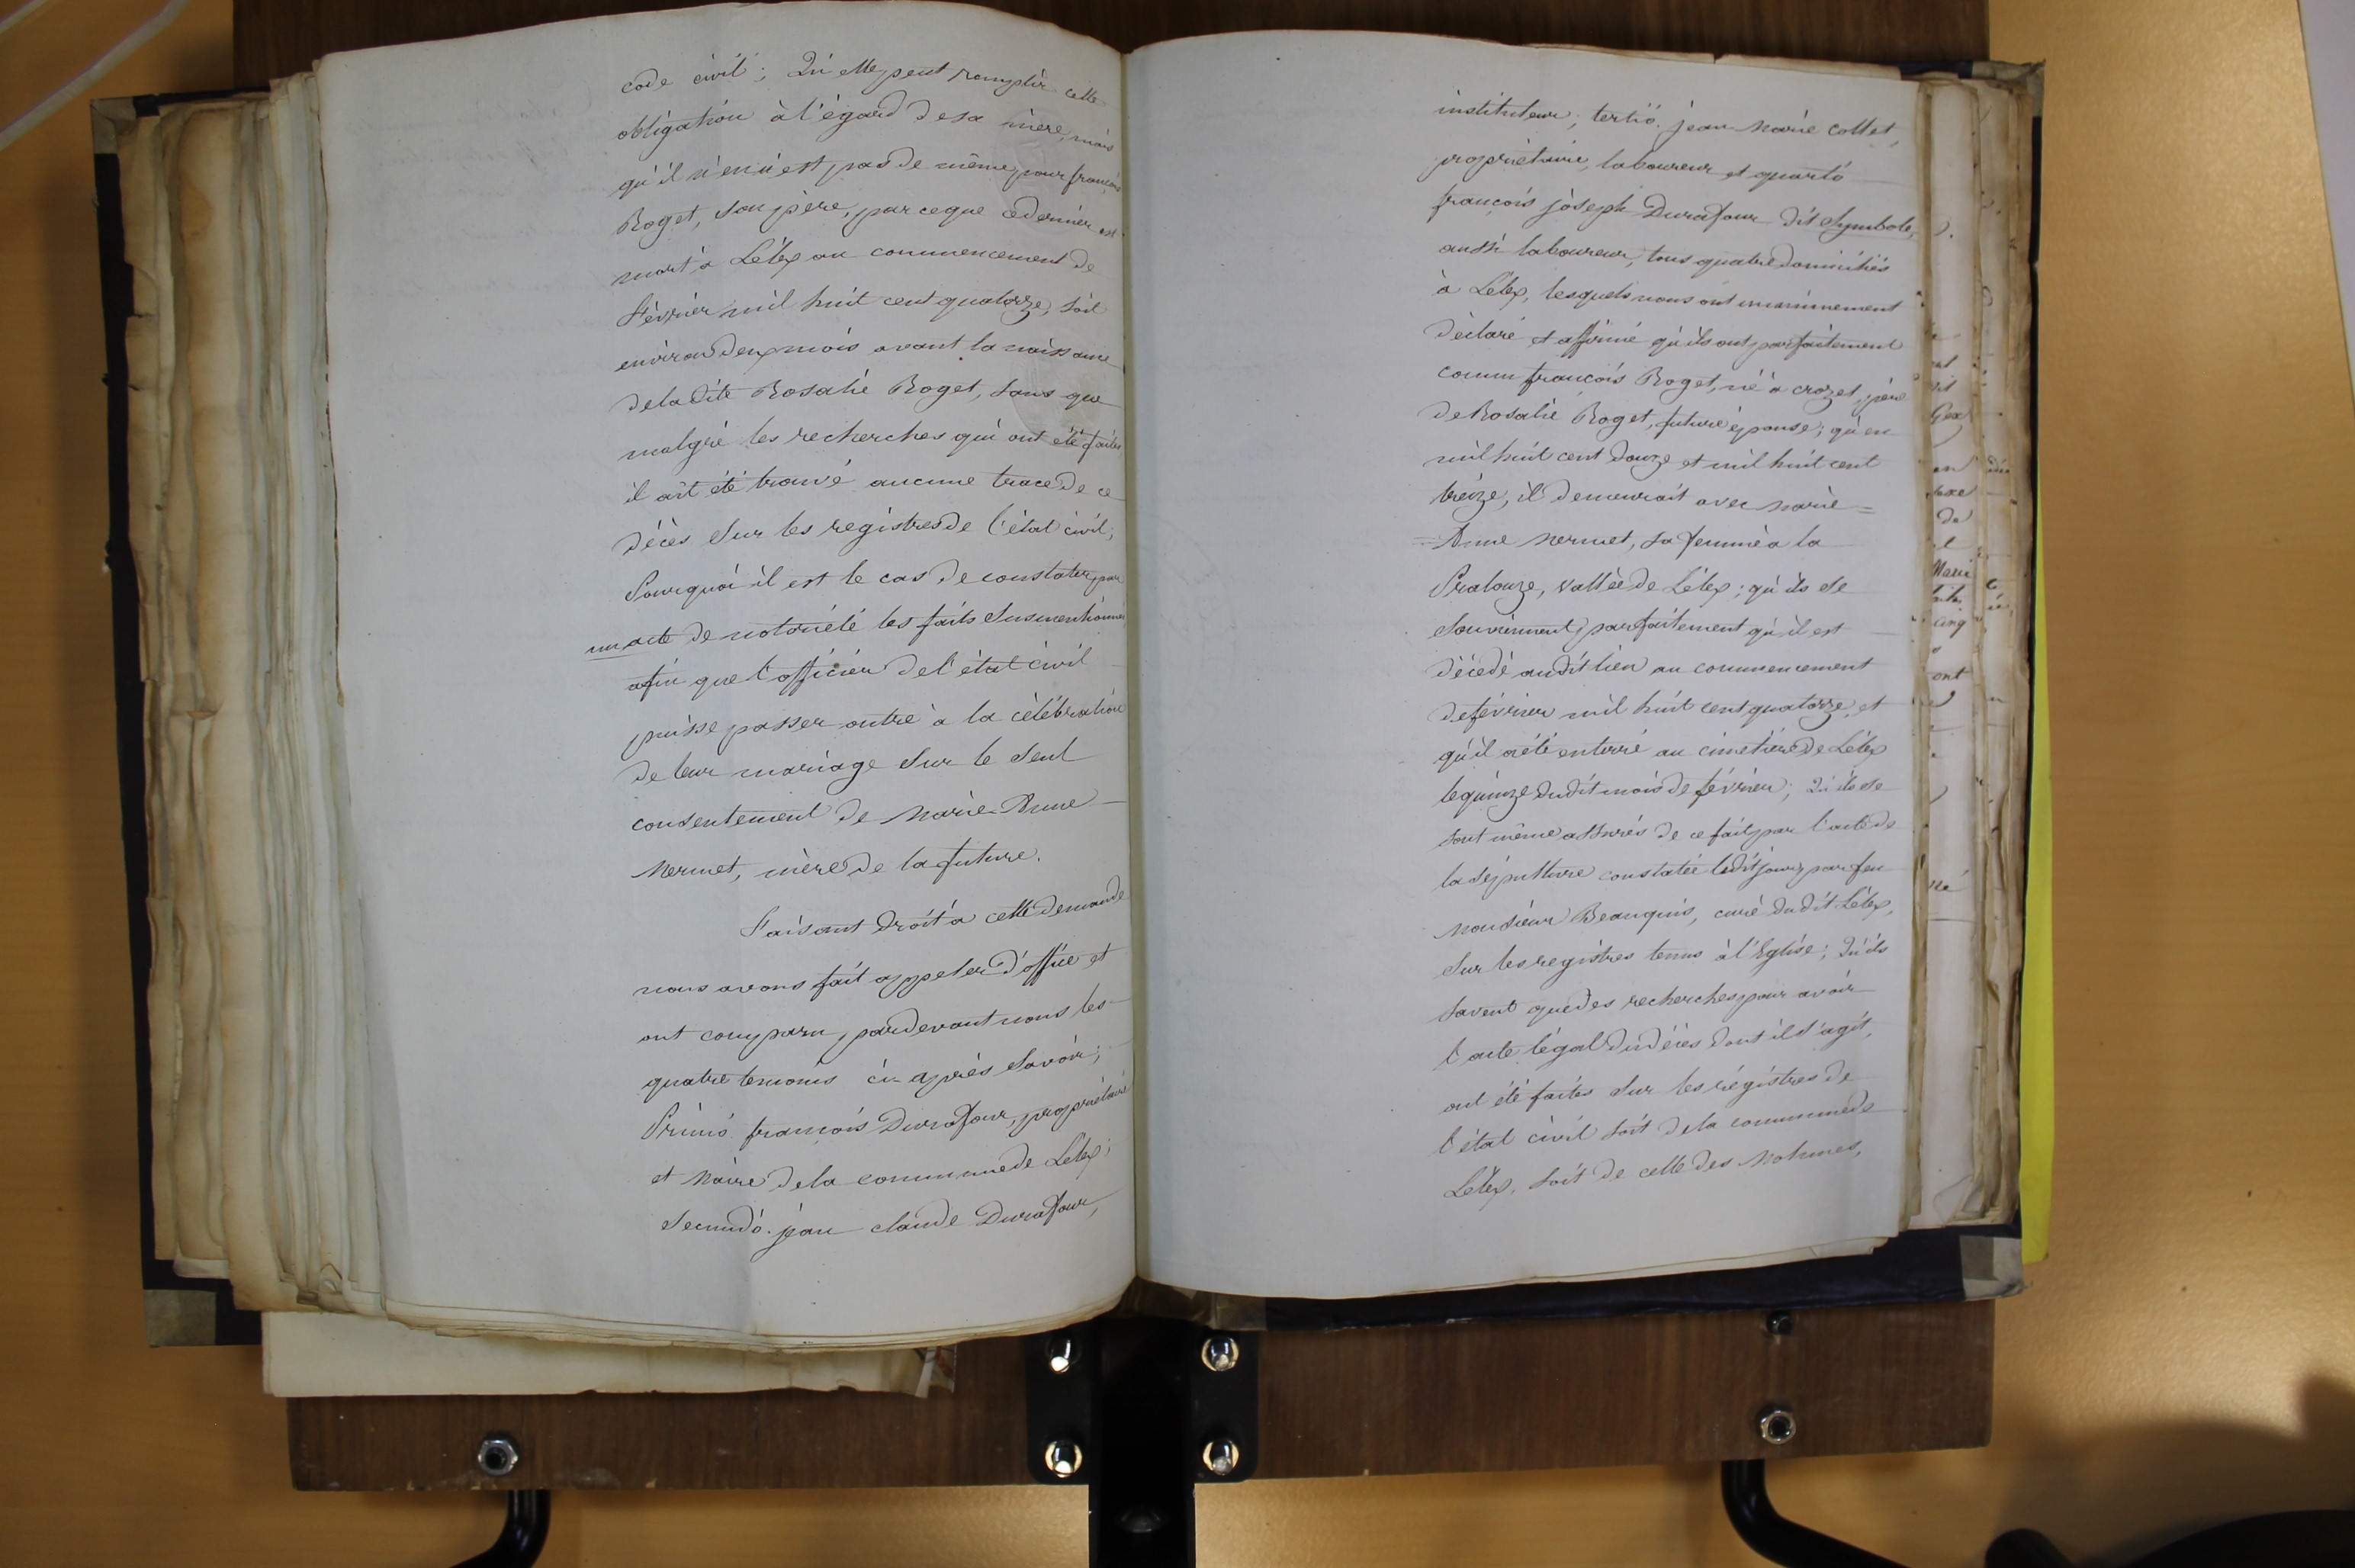 code civil ; Qu'elle peut remplir cette
obligation à l'égard de sa mère, mais
qu'il n'en n'est pas de même pour françois
Roget, son père, parceque ce dernier est
mort à Lélex au commencement de
février mil huit cent quatorze, soit
environ deux mois avant la naissance
de la dite Rosalie Roget, sans que
malgré les recherches qui ont été faites
il ait été trouvé aucune trace de ce
décès sur les registres de l'état civil,
Pourquoi il est le cas de constater, par
un acte de notoriété les faits susmentionnés
afin que l'officier de l'état civil
puisse passer outre à la célébration
de leur mariage sur le seul
consentement de Marie-Anne
Mermet, mère de la future.
Faisant droit à cette demande
nous avons fait appeler d'office et
ont comparu, pardevant nous les
quatre temoins ci-après savoir ;
Primò. françois Durafour, propriétaire
et Maire de la commune de Lélex ;
Secundò. jean claude Durafour,
instituteur ; tertiò. jean-Marie collet,
propriétaire, laboureur et quartò
françois joseph Durafour dit Symbole,
aussi laboureur, tous quatre domiciliés
à Lélex, lesquels nous ont unanimement
déclaré et affirmé qu'ils ont parfaitement
connu françois Roget, né à crozet, père
de Rosalie Roget, future épouse ; qu'en
mil huit cent douze et mil huit cent
treize, il demeurait avec Marie=
=Anne Mermet, sa femme à la
Pralouze, vallée de Lélex ; qu'ils se
souviennent parfaitement qu'il est
décédé audit lieu au commencement
de février mil huit cent quatorze, et
qu'il a été enterré au cimetière de Lélex
le quinze dudit mois de février ; Qu'ils se
sont même assurés de ce fait par l'acte de
la sépulture constatée ledit jour, par feu
Monsieur Beauquis, curé dudit Lélex,
sur les registres tenus à l'Eglise ; Qu'ils
savent que des recherches pour avoir
l'acte légal du décès dont il s'agit,
ont été faites sur les régistres de
l'état civil soit de la commune de
Lélex, soit de celle des Molunes,